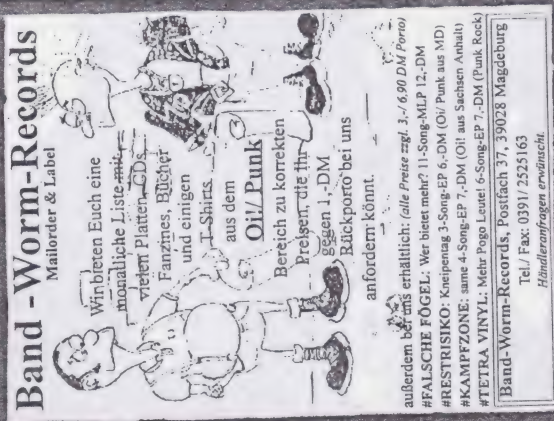 Band - Worm-Records
Mailorder & Label
Wir bieten Euch eine
monatliche Liste mit
vielen Platten, CDs,
Fanzines, Bücher
und einigen
T-Shirts
aus dem
Oi!/ Punk
Bereich zu korrekten
Preisen, die ihr
gegen 1,-DM
Rückporto bei uns
anfordern könnt.
außerdem bei uns erhältlich: (alle Preise zzgl. 3,-/ 6,90 DM Porto)
#FALSCHE FÖGEL: Wer bietet mehr? 11-Song-MLP 12,-DM
#RESTRISIKO: Kneipentag 3-Song-EP 6,-DM (Oi/ Punk aus MD)
#KAMPFZONE: same 4-Song-EP 7,-DM (Oi! aus Sachsen Anhalt)
#TETRA VINYL: Mehr Pogo Leute! 6-Song-EP 7,-DM (Punk Rock)
Band-Worm-Records, Postfach 37, 39028 Magdeburg
Tel./ Fax: 0391/ 2525163
Händleranfragen erwünscht.